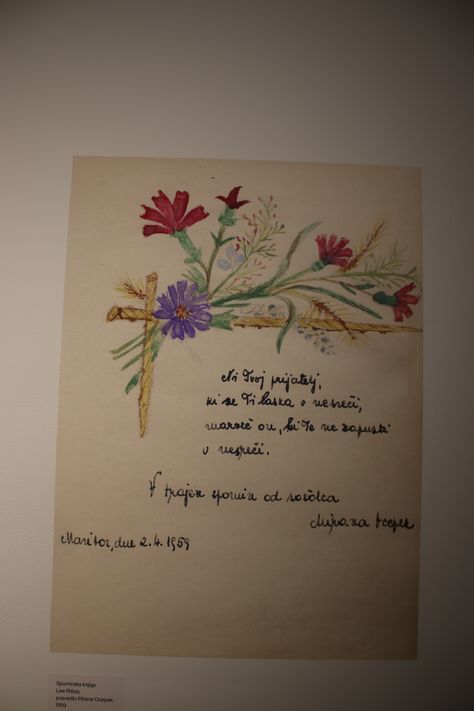 Ni Tvoj prijatelj,
ki se Ti laska v nesreči,
marveč on, ki Te ne zapusti
v nesreči.
V trajen spomin od sošolca
Mirjana Ocepek
Maribor, dne 2.4.1959
Spominska knjiga
Lee Ritlop,
posvetilo Mirane Ocepek,
1959